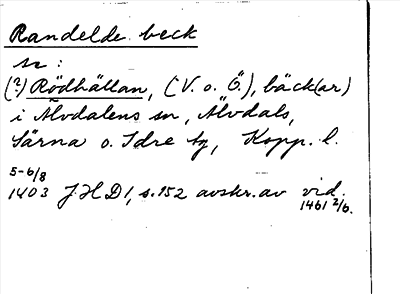 Randelde beck
sr:
(?) Rödhällan, (V. o. Ö.), bäck(ar)
i Älvdalens sn, Älvdals,
Särna o. Idre tg, Kopp. l.
5-6/8
1403 JHD1, s. 152 avskr. av vid.
1461 2/6.